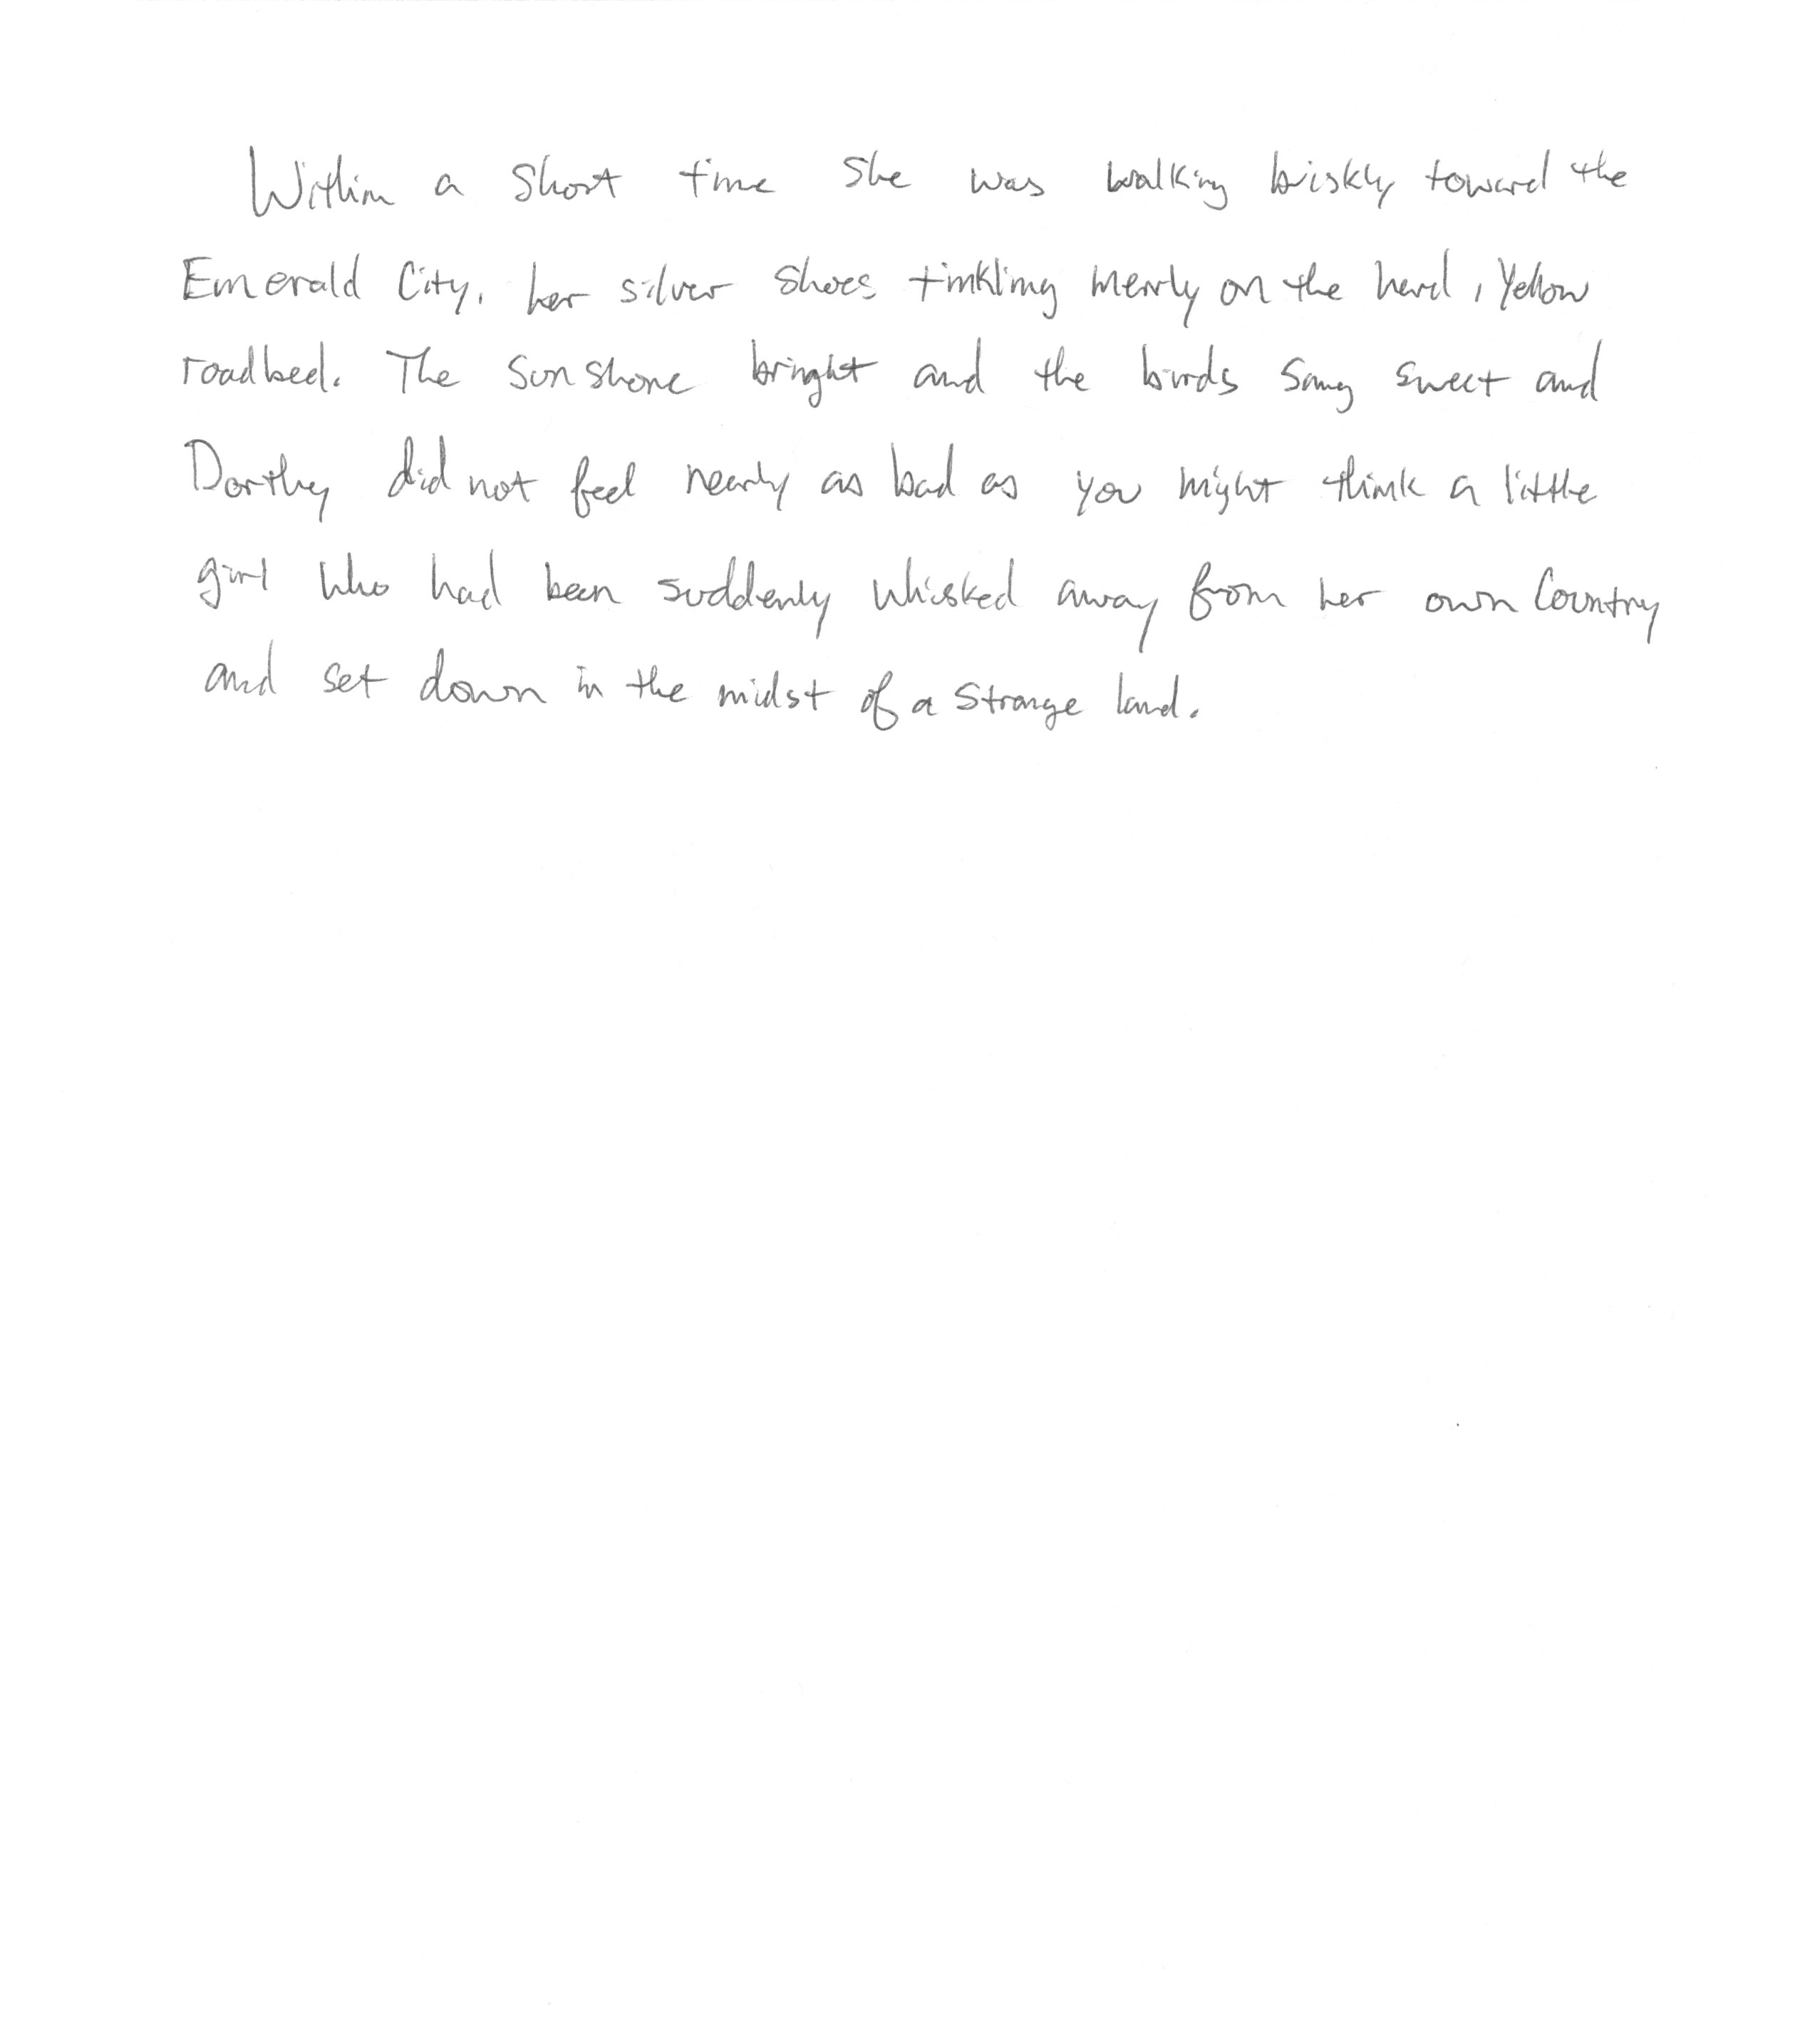 Within a short time she was walking briskly toward the
Emerald City, her silver shoes tinkling merrly on the hard, Yellow
roadbed. The sun shone bright and the birds sang sweet and
Dorthy did not feel nearly as bad as you might think a little
girl who had been suddenly whisked away from her own Country
and set down in the midst of a strange land.